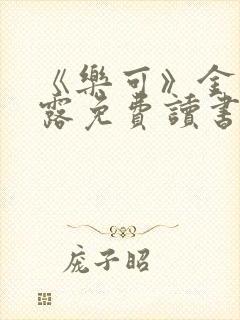 《樂可》金
露免費讀書
庞子昭